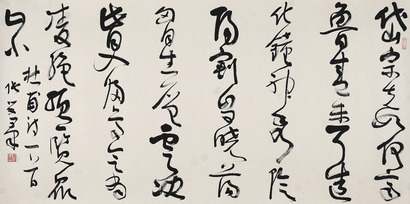 岱宗夫如何齊
魯青未了造
化鐘神秀陰
陽割昏曉蕩
胸生層雲決
眥入歸鳥會當
凌絕頂一覽眾
山小
杜甫詩一首